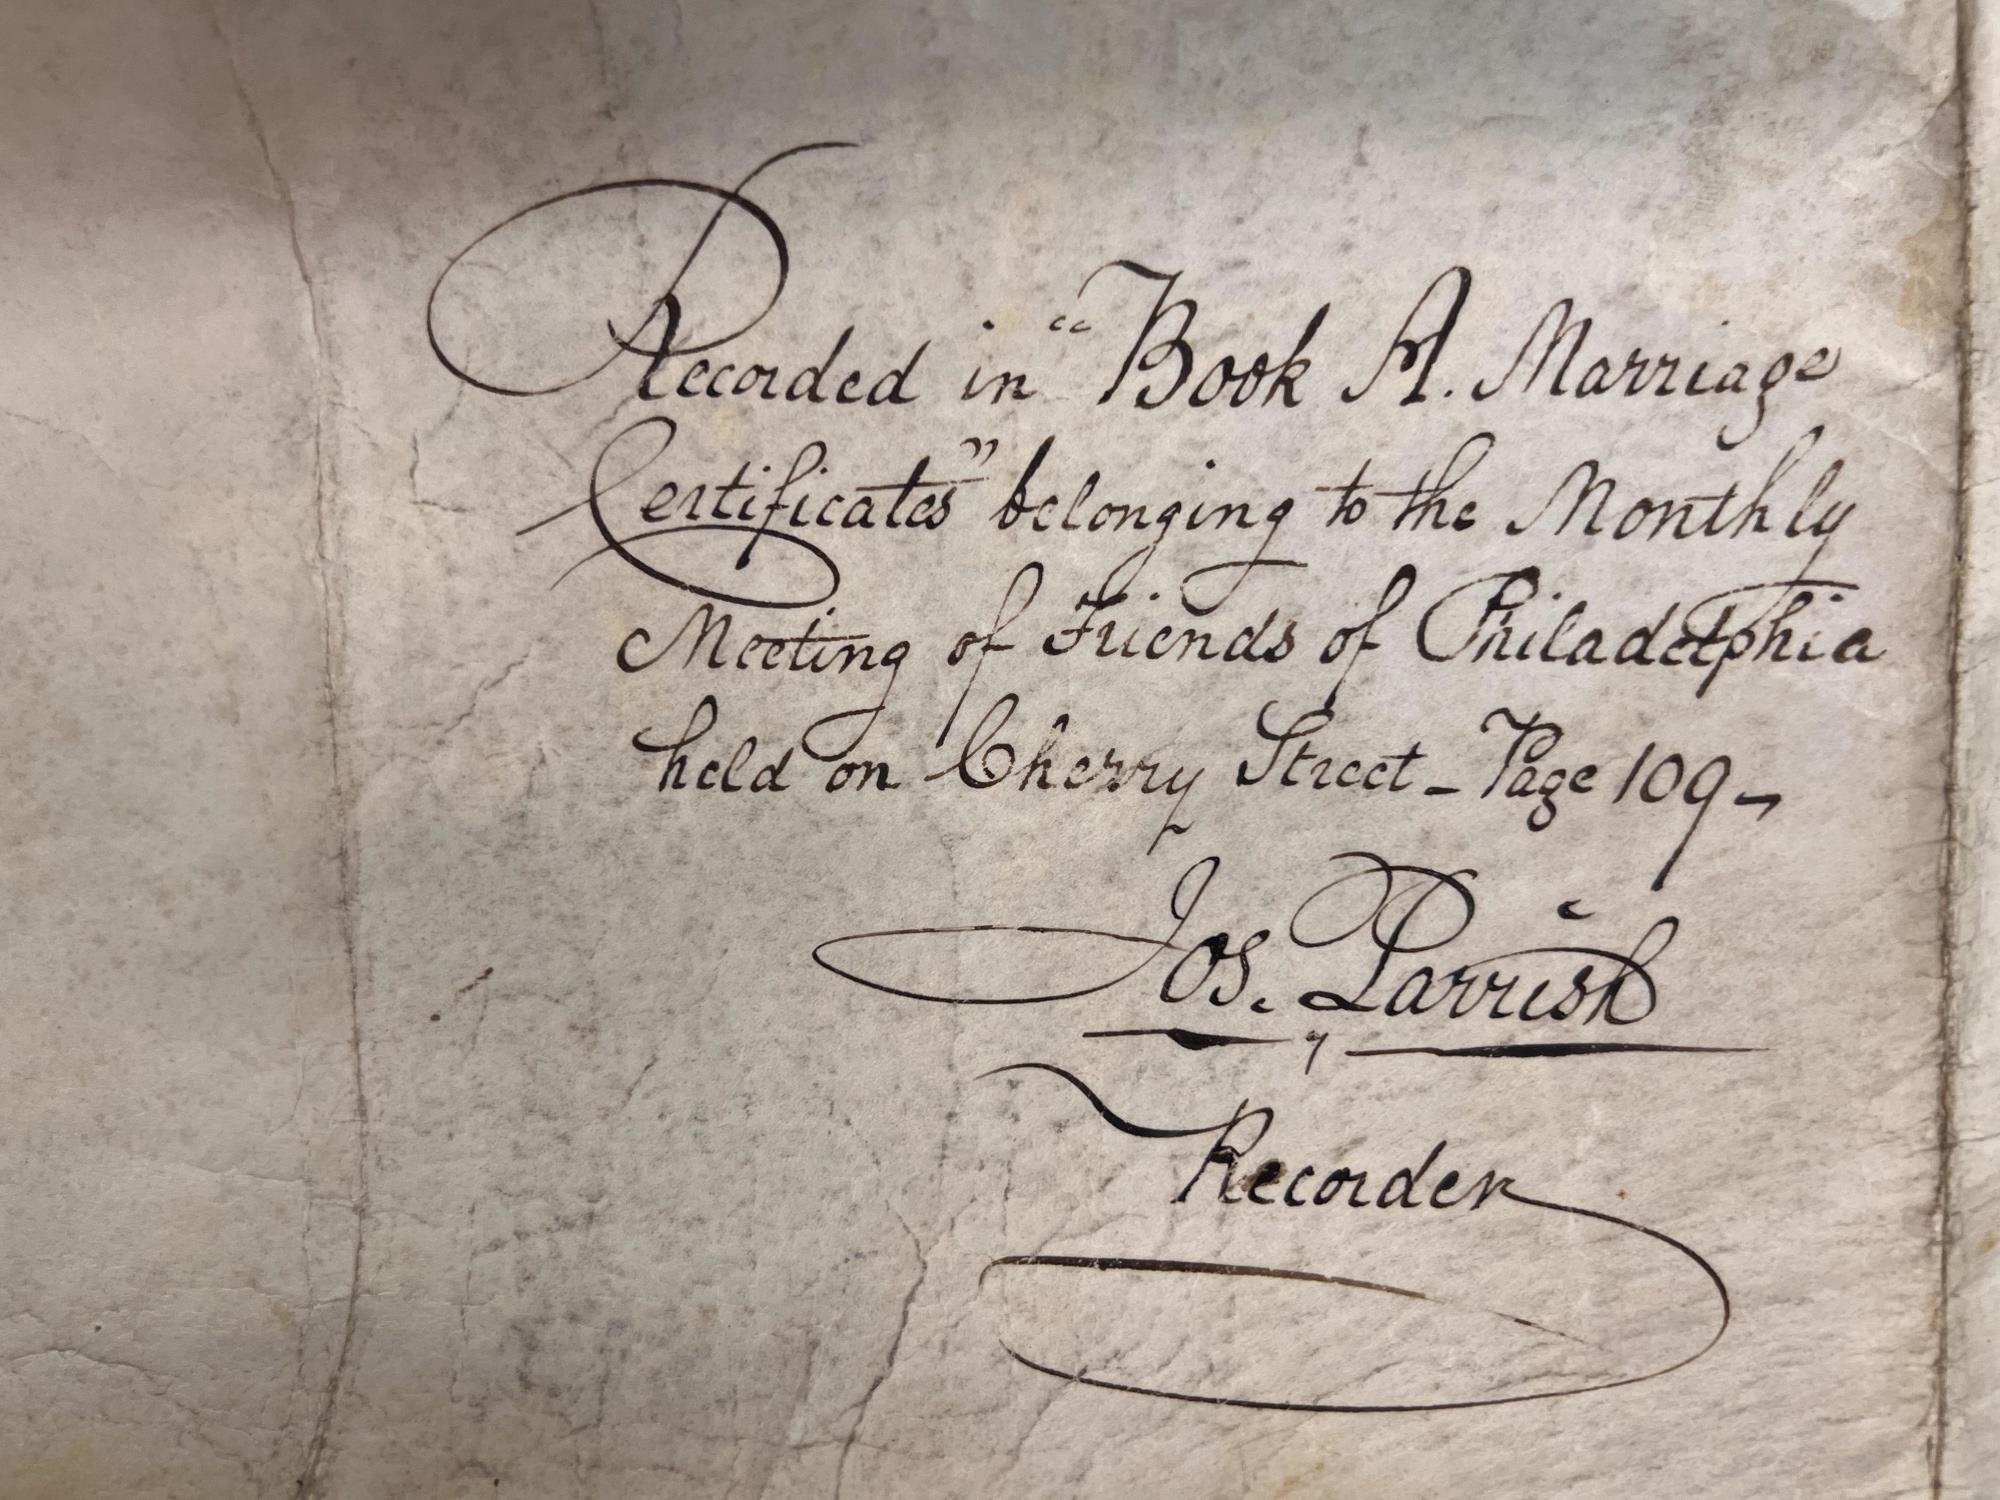 Recorded in "Book A. Marriage
Certificates" belonging to the Monthly
Meeting of Friends of Philadelphia
held on Cherry Street - Page 109 -
Jos. Parrish
Recorder